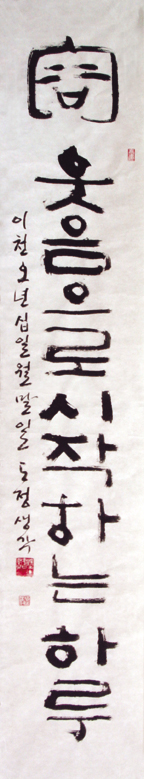 웃음으로시작하는하루
이천오년십일월말일 도정생각